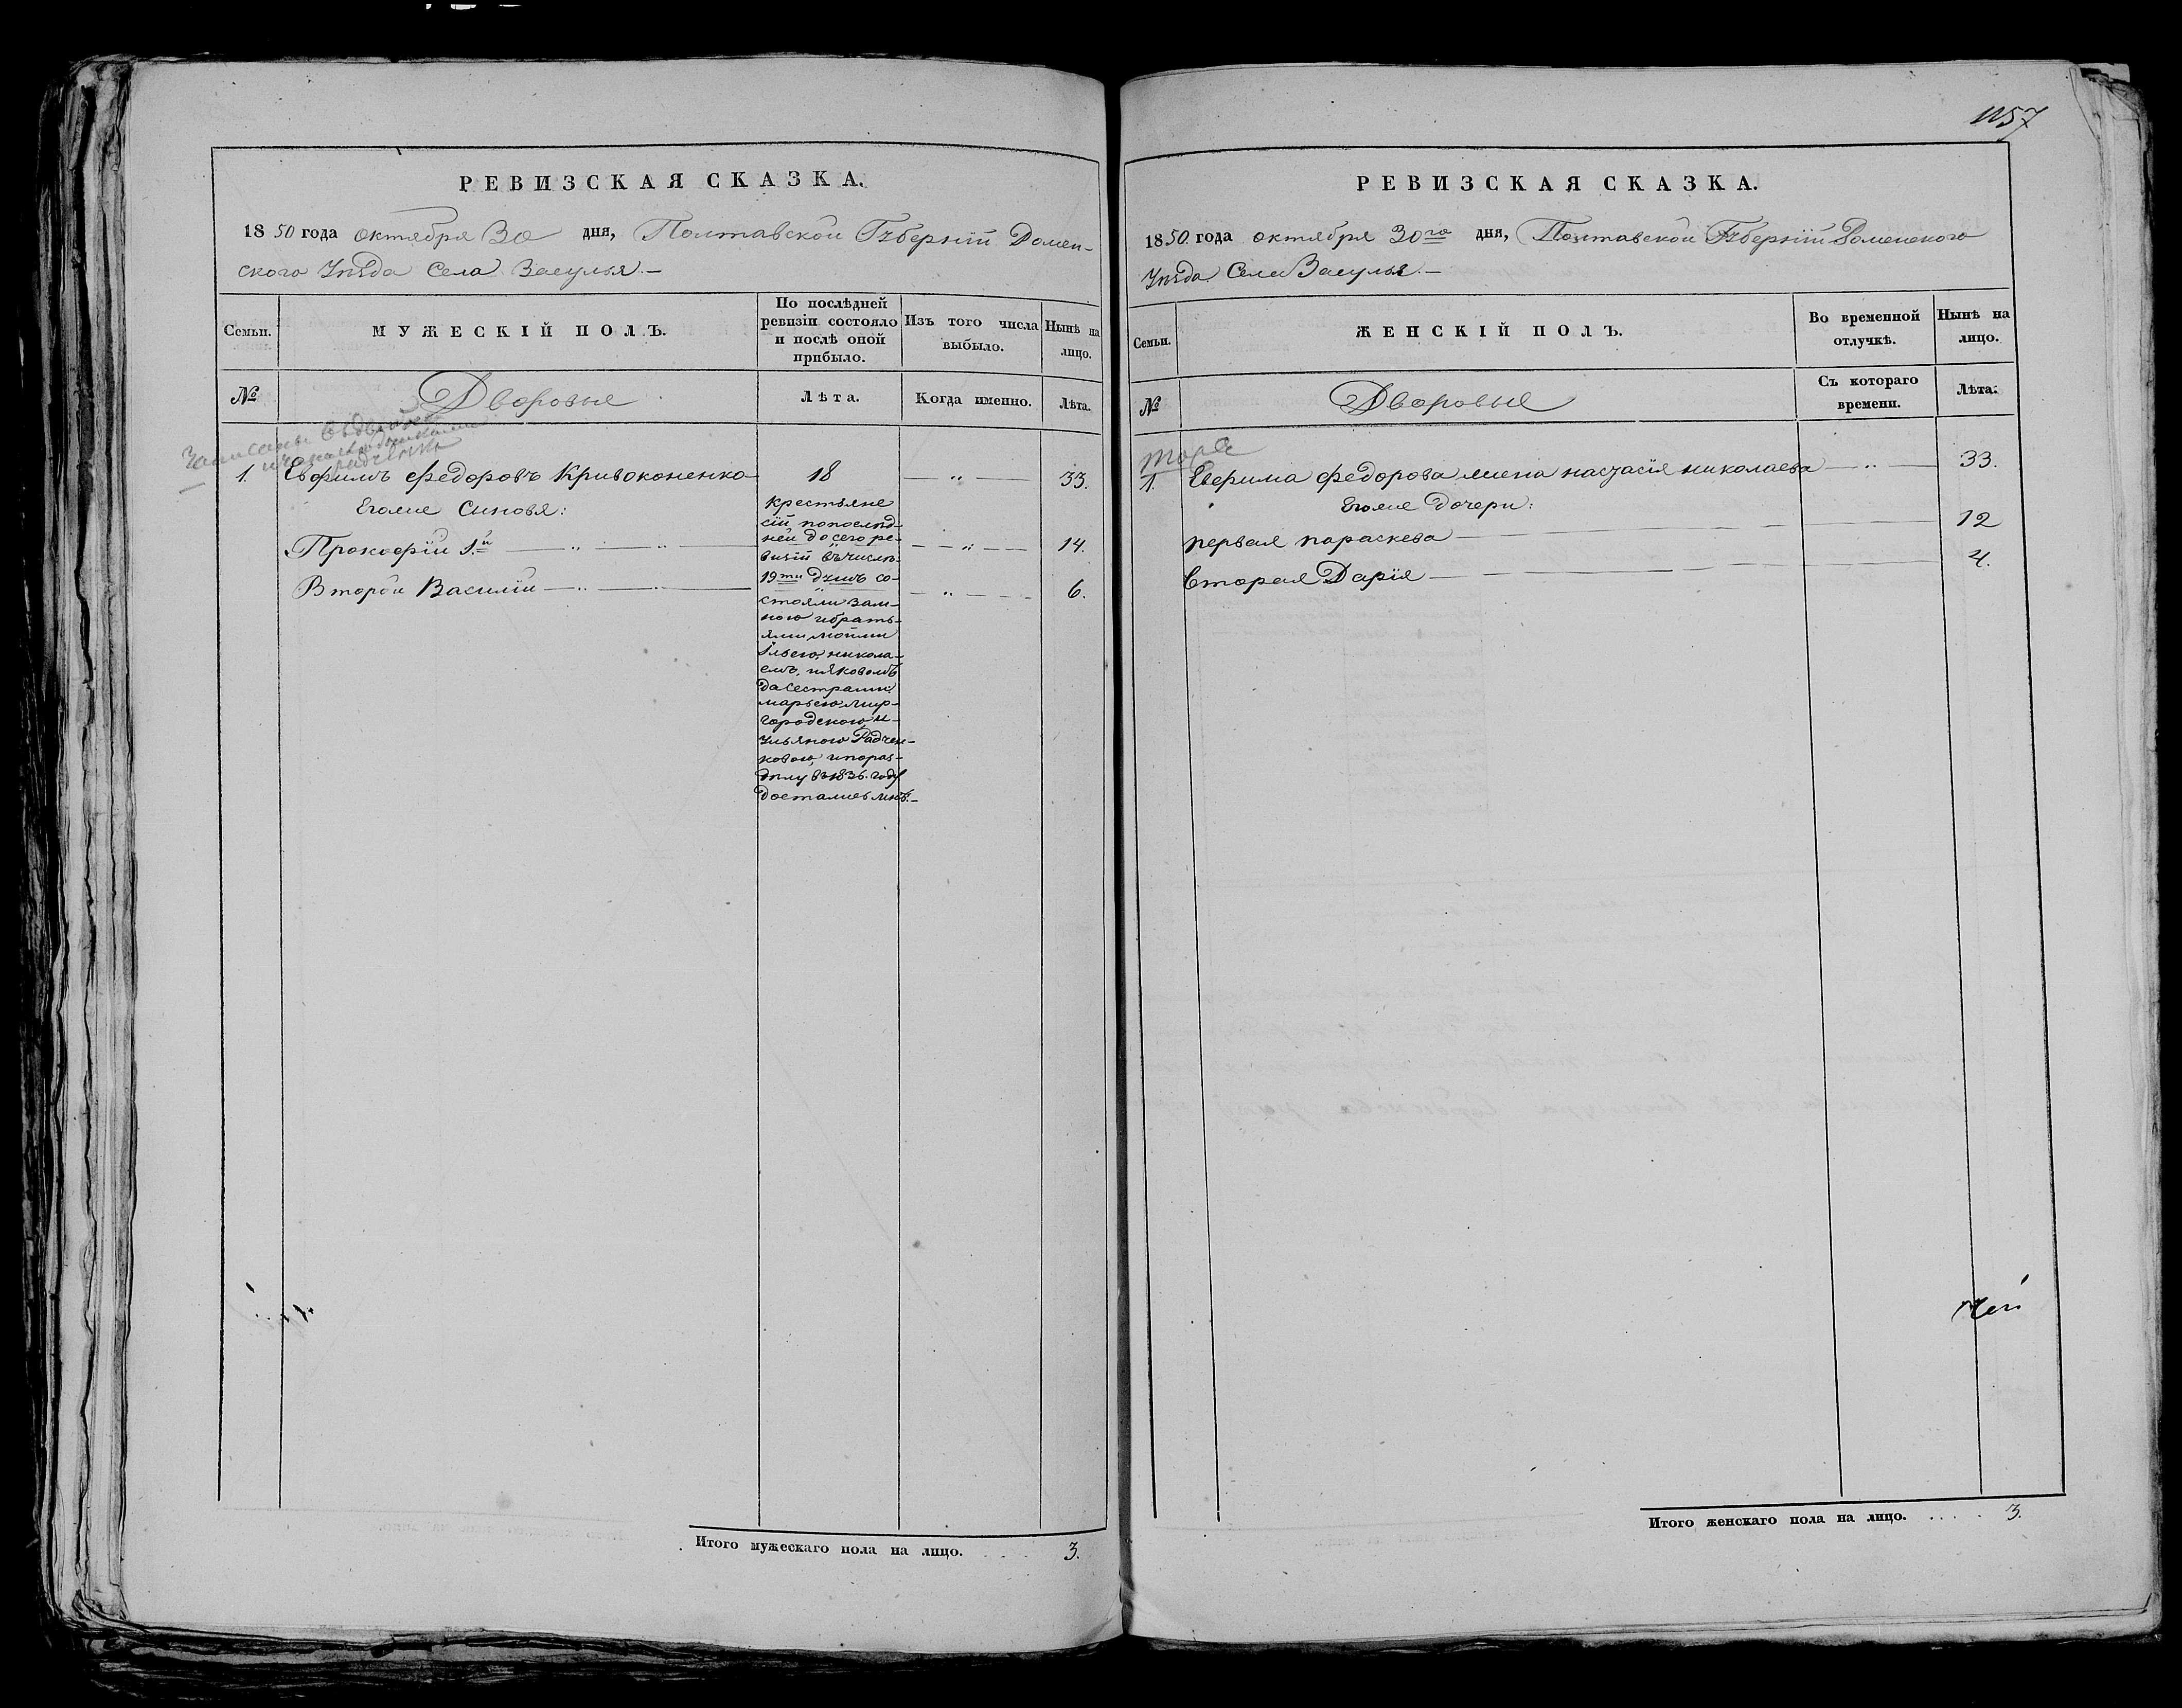 1157
РЕВИЗСКАЯ СКАЗКА.
1850 года октября 30 дня, Полтавской Губернии Ромен-
ского Уезда Села Засулья.—
Семьи.
МУЖЕСКІЙ ПОЛЪ.
По послѣдней ревизіи состояло и послѣ оной прибыло.
Изъ того числа выбыло.
Нынѣ на лицо.
№
Дворовые
Лѣта.
Когда именно.
Лѣта.
Записаны
1. Евфимъ Федоровъ Кривоконенко 18 — „ — 33.
Егоже Сыновя:
Прокофій 1.й — „ — 14.
Второй Василій — „ — 6.
крестьяне
сій попослѣд-
ней досего ре-
визій въчислѣ
19ти душъ со-
стояли зам-
ною ибрать-
ями моими
Ильею, никола-
емъ, ияковомъ
дасестрами:
марьею мир-
городскою и
ульяною Радчен-
ковою, ипораз-
дѣлу въ1836. году
достались мнѣ.—
Итого мужескаго пола на лицо. . . . . 3.
РЕВИЗСКАЯ СКАЗКА.
1850. года октября 30го дня, Полтавской Губерній Роменского
Уезда Села Засулья.—
Семьи.
ЖЕНСКІЙ ПОЛЪ.
Во временной отлучкѣ.
Нынѣ на лицо.
№
Дворовые
Съ котораго времени.
Лѣта.
1. Евфима Федорова жена настасія николаева — „ — 33.
Егоже дочери:
первая параскева — 12
вторая Дарія — 4.
Итого женскаго пола на лицо. . . . . 3.